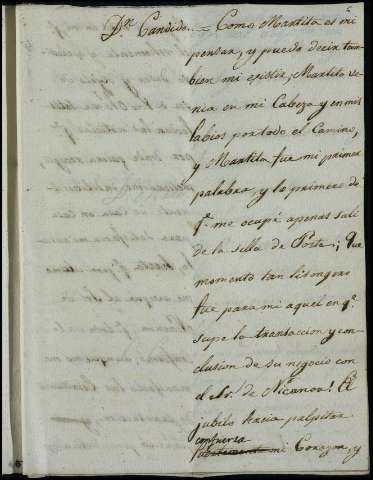 Dn. Candido. = Como Martita es mi
pensar, y puedo decir tam-
bien mi existir, Martita ve-
nia en mi Cabeza y en mis
labios por todo el Camino,
y Martita fue mi primer
palabra, y lo primero de
q.e me ocupé apenas sali
de la silla de Posta; ¡Que
momento tan lisongero
fue para mi aquel en q.e
supe la transaccion y con-
clusion de su negocio con
el Sr. de Nicanor! El
jubilo hacia palpitar
con fuerza
fuertemente mi Corazon, y